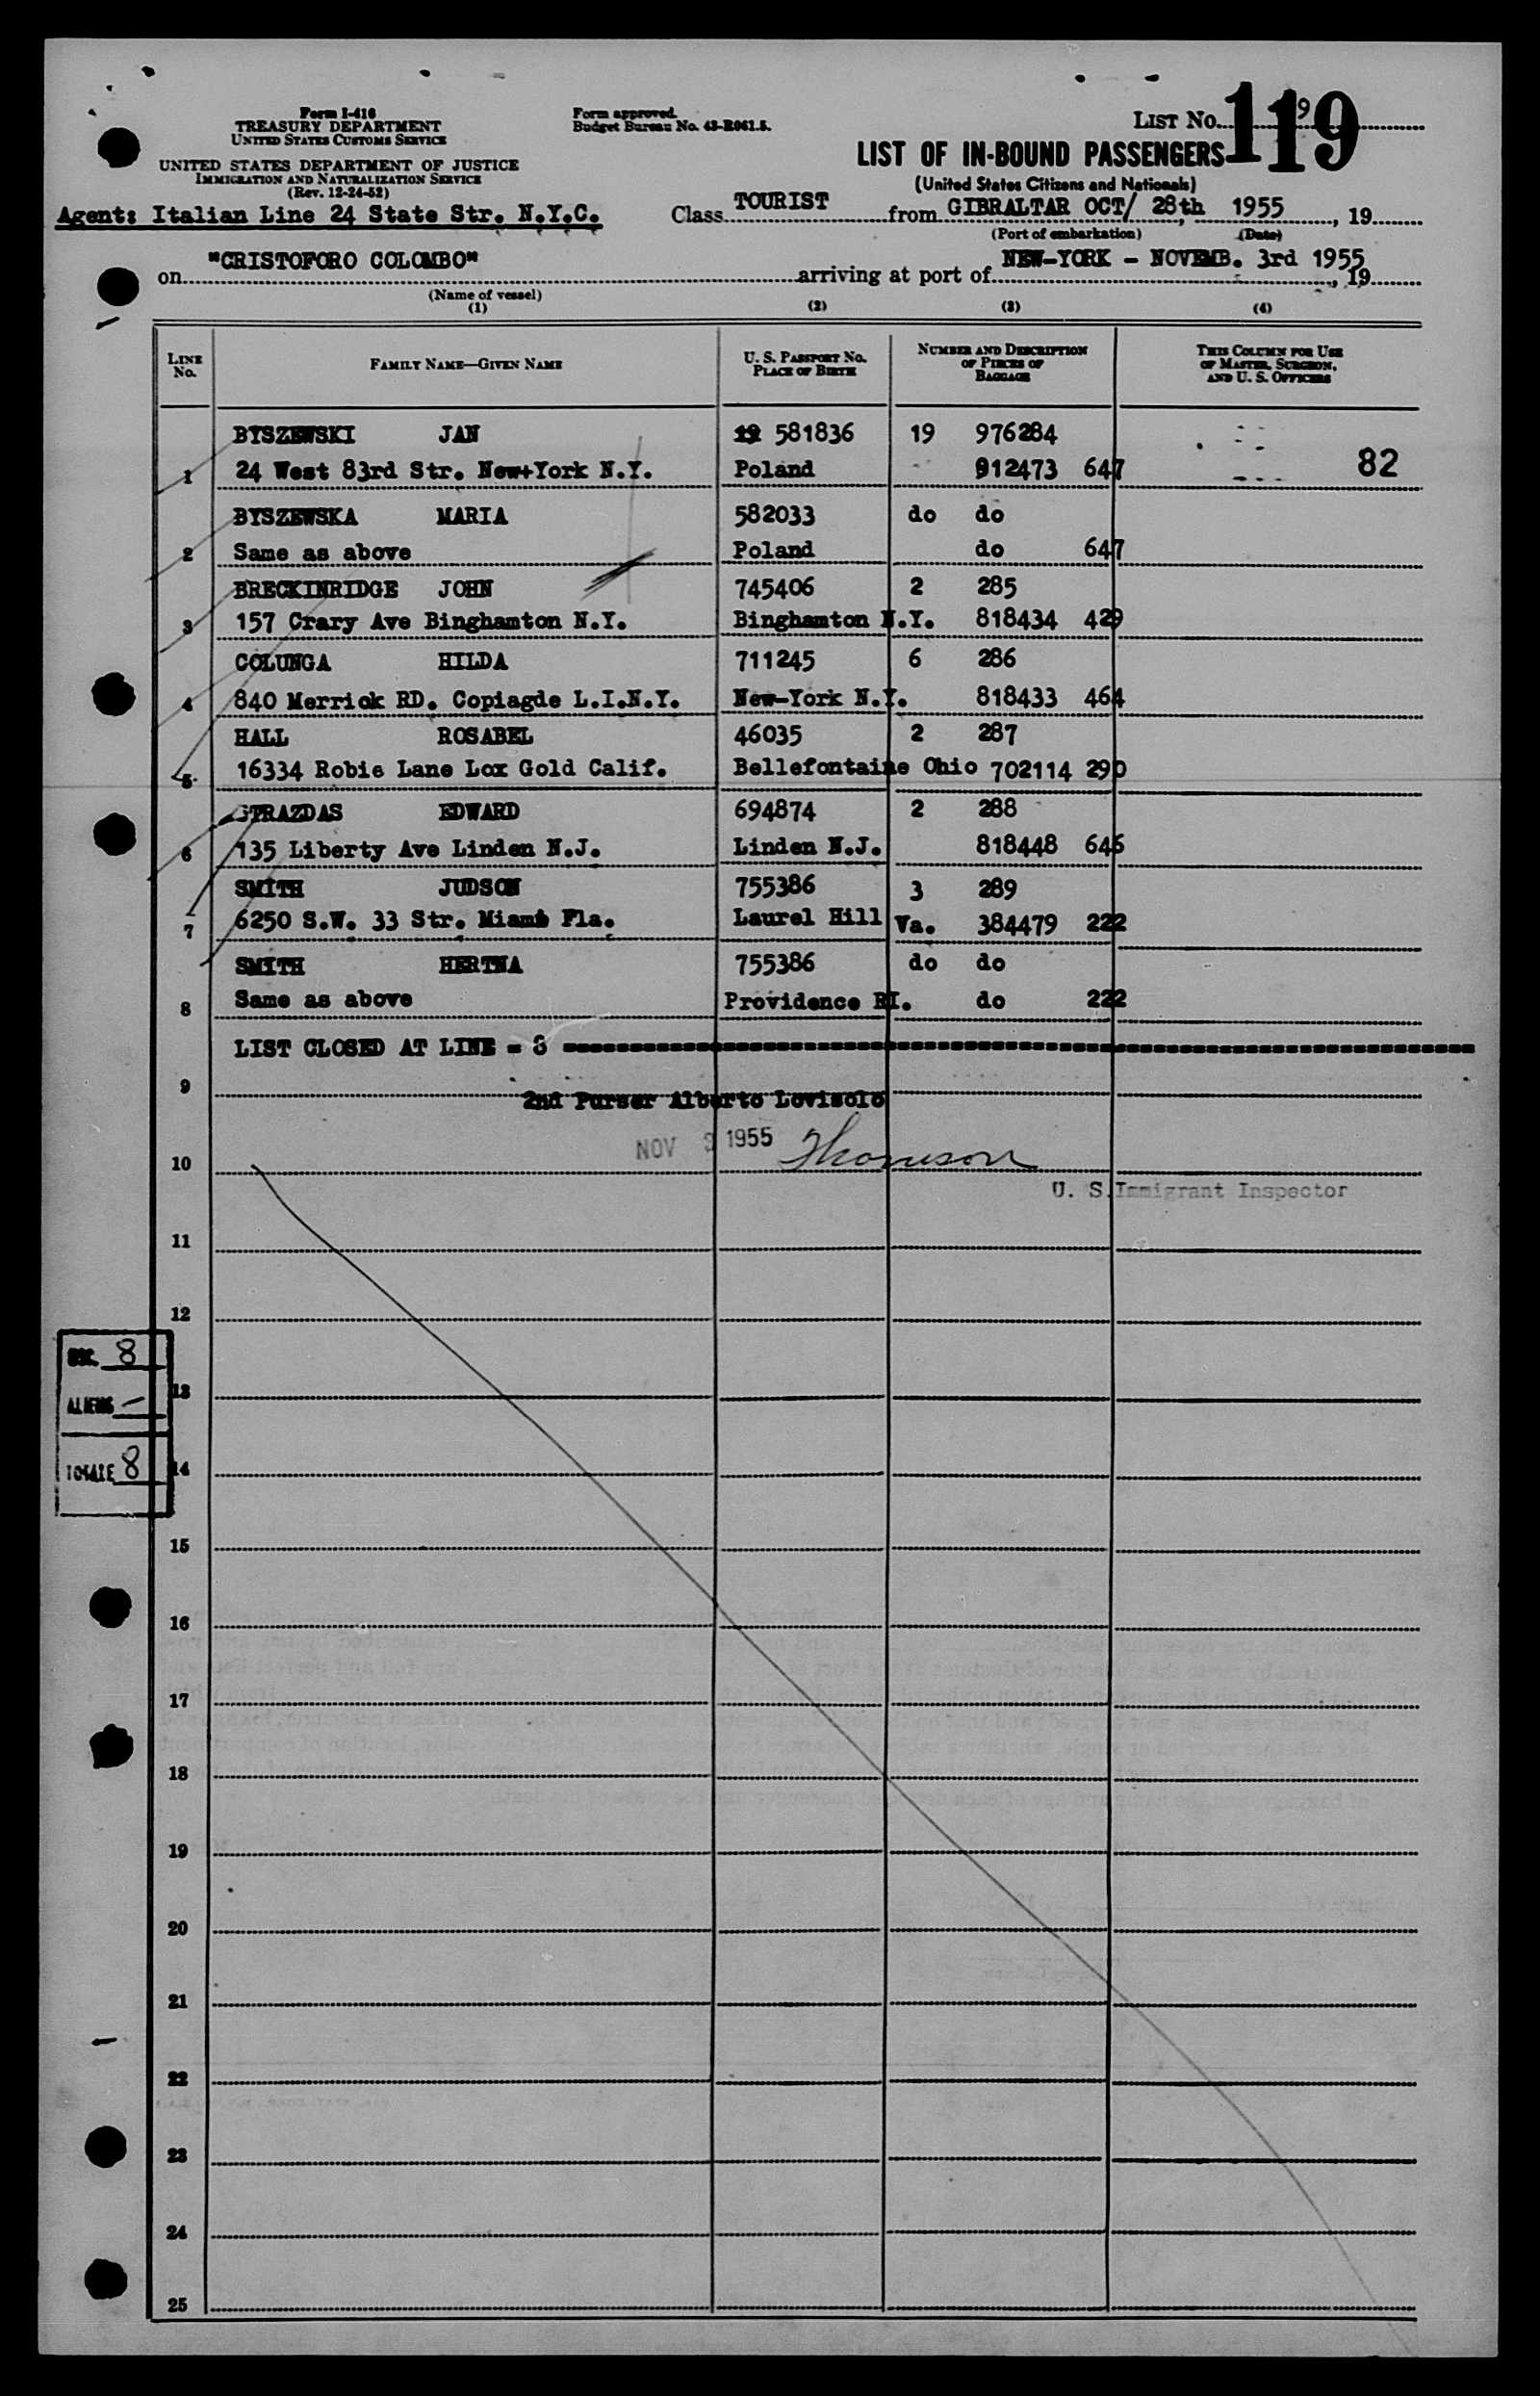 Form I-416
TREASURY DEPARTMENT
UNITED STATES CUSTOMS SERVICE
UNITED STATES DEPARTMENT OF JUSTICE
IMMIGRATION AND NATURALIZATION SERVICE
(Rev. 12-24-52)
Form approved.
Budget Bureau No. 43-R061.5.
LIST No. 9
119
LIST OF IN-BOUND PASSENGERS
(United States Citizens and Nationals)
Agent: Italian Line 24 State Str. N.Y.C.
Class TOURIST from GIBRALTAR OCT/ 28th, 1955, 19
(Port of embarkation) (Date)
on "CRISTOFORO COLOMBO" arriving at port of NEW-YORK - NOVEMB. 3rd 1955, 19
(Name of vessel)
(1) (2) (3) (4)
LINE No. FAMILY NAME—GIVEN NAME U. S. PASSPORT No. PLACE OF BIRTH NUMBER AND DESCRIPTION OF PIECES OF BAGGAGE THIS COLUMN FOR USE OF MASTER, SURGEON, AND U. S. OFFICERS
BYSZEWSKI JAN 581836 19 976284
1 24 West 83rd Str. New+York N.Y. Poland 912473 647 82
BYSZEWSKA MARIA 582033 do do
2 Same as above Poland do 647
BRECKINRIDGE JOHN 745406 2 285
3 157 Crary Ave Binghamton N.Y. Binghamton N.Y. 818434 429
COLUNGA HILDA 711245 6 286
4 840 Merrick RD. Copiagde L.I.N.Y. New-York N.Y. 818433 464
HALL ROSABEL 46035 2 287
5 16334 Robie Lane Lox Gold Calif. Bellefontaine Ohio 702114 290
STRAZDAS EDWARD 694874 2 288
6 135 Liberty Ave Linden N.J. Linden N.J. 818448 646
SMITH JUDSON 755386 3 289
7 6250 S.W. 33 Str. Miami Fla. Laurel Hill Va. 384479 222
SMITH HERTHA 755386 do do
8 Same as above Providence RI. do 222
LIST CLOSED AT LINE = 8
9
2nd Purser Alberto Lovisolo
NOV 3 1955 Thomson
10
U. S. Immigrant Inspector
11
12
USC. 8
13
ALIENS -
TOTALE 8
14
15
16
17
18
19
20
21
22
23
24
25